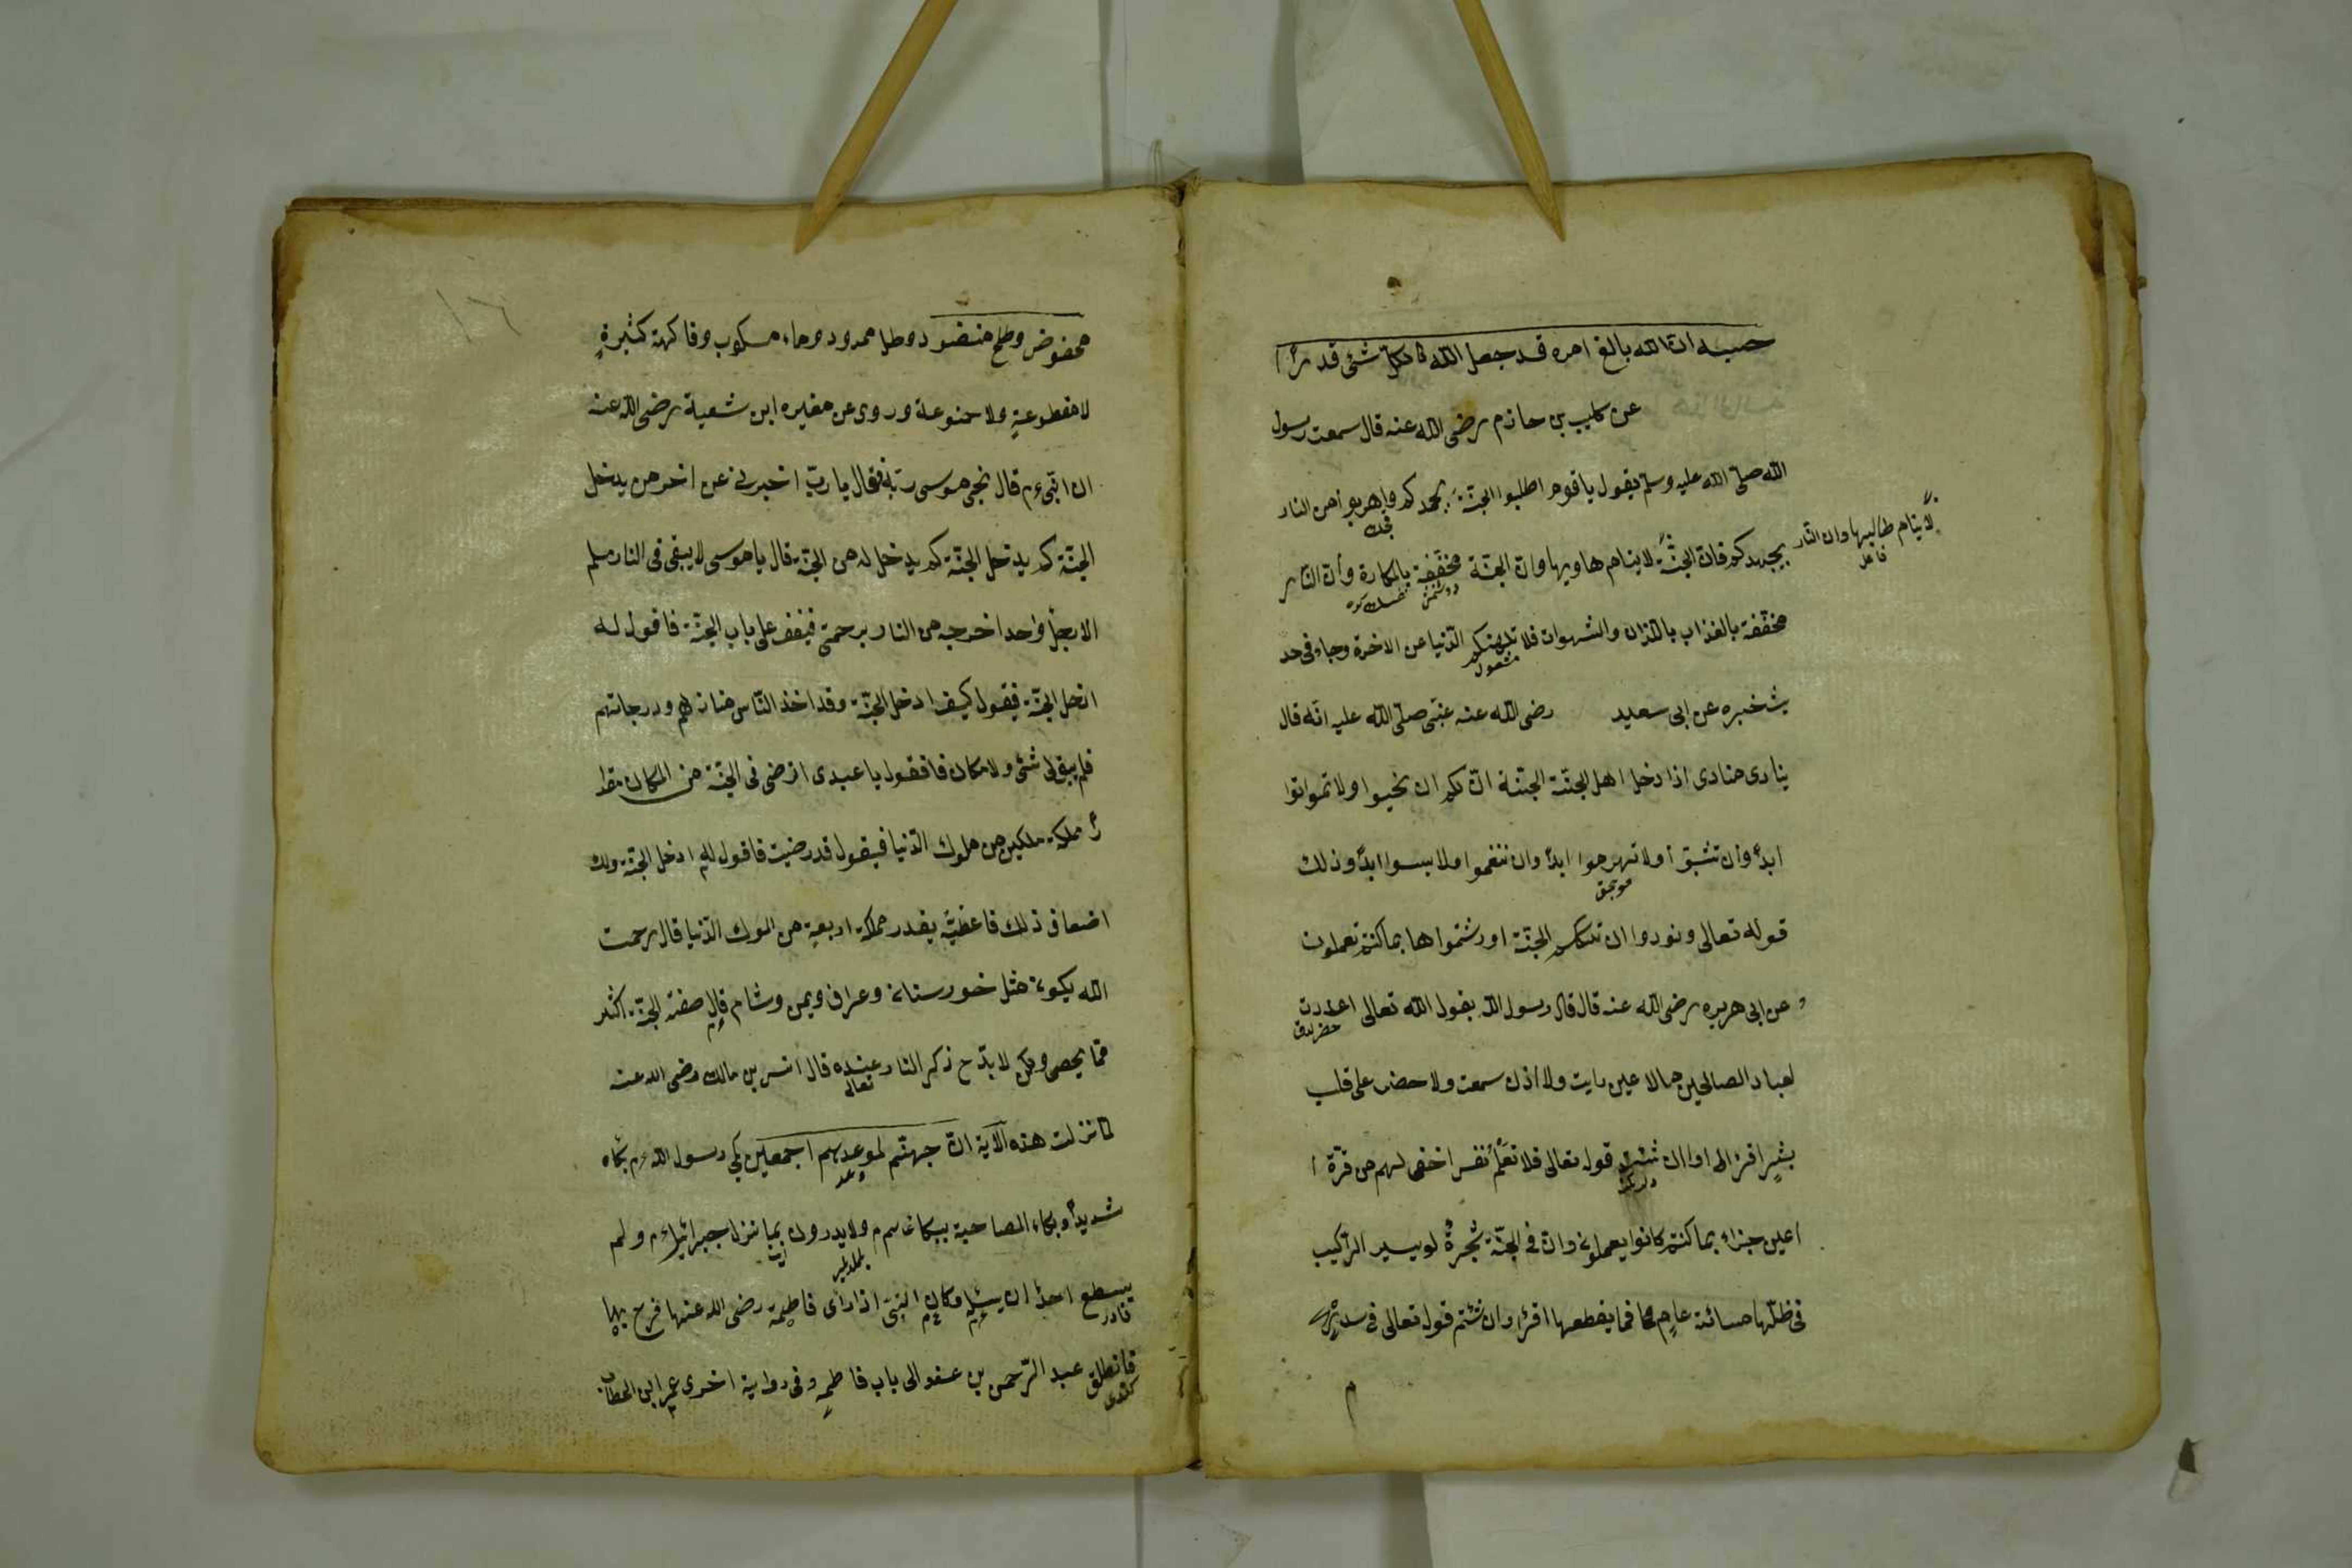 حسبه ان الله بالغ امره قد جعل الله لكلّ شئ قدرًا
عن كليب بن حازم رضى الله عنه قال سمعت رسول
الله صلىّ الله عليه وسلّم يقول يا قوم اطلبوا الجنّة بجهدكم واهربوا من النار
بجهدكم فان الجنّة لا ينام هاربها وان الجنّة مخفّفة بالمكارة وأن النار
لا ينام طالبها وان النار
فاعل
مخفّفة بالعذاب بالذان والشهوات فلا تلهينكم الدّنيا عن الاخرة وجاء فى حد
مشغول
يث خبره عن ابى سعيد رضى الله عنه عنبّى صلىّ الله عليه انّه قال
ينادى منادى اذا دخل اهل الجنّة الجنّة انّ لكم ان تحيوا ولا تمواتوا
ابدًا وان تشبوا ولا تهرموا ابدًا وان تنعموا ولا بيسوا ابدًا وذلك
قوله تعالى ونوردوا ان تلكم الجنّة اورثتموا ها بما كنتم تعملون
وعن ابى هريره رضى الله عنه قال قال رسول الله يقول الله تعالى اعددت
لعباد الصالحين ما لا عين رايت ولا اذن سمعت ولا حضر على قلب
بشر اقرا وان شئتم قوله تعالى فلا تعلم نفس اخفى لهم من قرّة ا
اعين جزاء بما كنتم كانوا يعملون وانّ فى الجنّة شجرة لو يسير الراكيب
فى ظلّها مسائة عام فما يقطعها اقرا وان شئتم قوله تعالى فى سدر
١٦
مخفوض وطلح منضود وظل ممدود وماء مسكوب وفاكهة كثيرة
لا مقطوعة ولا ممنوعة وروى عن مغيره ابن شعبة رضى الله عنه
ان النبى م قال نجى موسى ربّه فقال يا ربّ اخبرنى عن اخر من يدخل
الجنّة كم يدخل الجنّة كم يدخل له من الجنّة قال يا موسى لا يبقى فى النار مسلم
الا رجلا واحدا اخرجه من النار برحمتى فيقف على باب الجنّة فاقول له
ادخل الجنّة فيقول كيف ادخل الجنّة وقد اخذ النّاس منازلهم ودرجاتهم
فلم يبق لى شئ ولا مكان فاقول يا عبدى ارضى فى الجنّة من المكان مقدا
رًا مملكة ملكين من ملوك الدّنيا فيقول قد رضيت فاقول له ادخل الجنّة ولك
اضعاف ذلك فاعطيّه بقدر مملكة اربعة من الموك الدّنيا قال رحمت
الله يكون مثل خورستان وعراق ويمن وشام قال صفة الجنّة اكثر
ممّا يحصى ولكن لا بدّ ح ذكر النار عنده قال انس بن مالك رضى الله عنه
تعالى
لما نزلت هذه الآية انّ جهنّم لموعدهم اجمعين بكى رسول الله م بكاه
شديدًا وبكاء المصاحبة ببكائهم ولا يدرون بما نزل جبرائيل م ولم
يسطع احد ان يسئله وكان النبىّ اذا راى فاطمة رضى الله عنها فرح بها
قادر
فانطلق عبد الرّحمن بن عفو الى باب فاطمه وفى رواية اخرى عمر ابن الخطاب